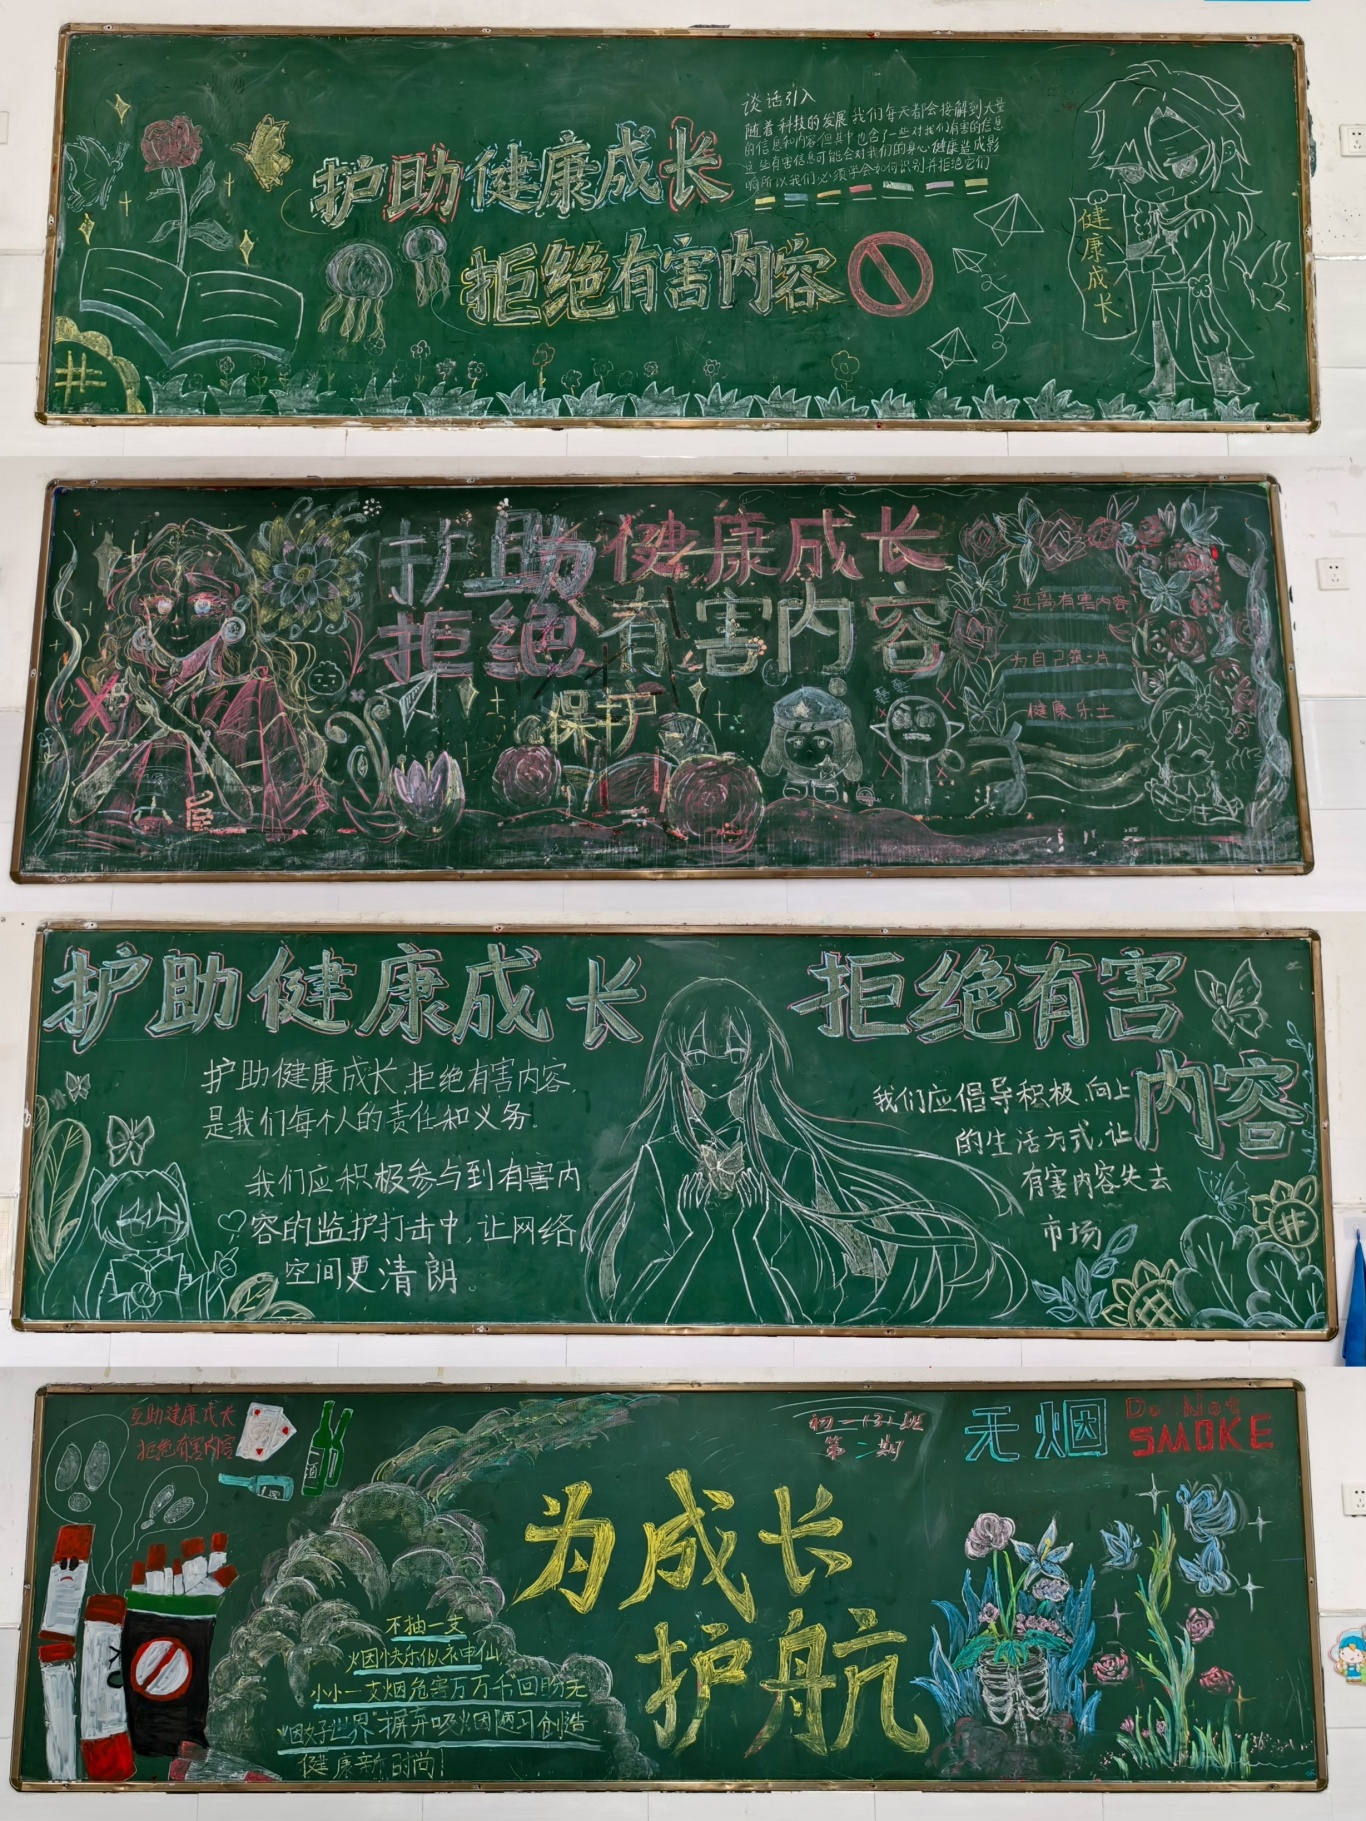 护助健康成长
拒绝有害内容
谈话引入
随着科技的发展我们每天都会接解到大量
的信息和内容但其中也含了一些对我们有害的信息
这些有害信息可能会对我们的身心健康造成影
响所以我们必须学会如何识别并拒绝它们
健康成长
护助健康成长
拒绝有害内容
保护
远离有害内容
为自己筑一片
健康乐土
护助健康成长
拒绝有害
内容
护助健康成长,拒绝有害内容,
是我们每个人的责任和义务。
我们应积极参与到有害内
容的监护打击中,让网络
空间更清朗。
我们应倡导积极、向上
的生活方式,让
有害内容失去
市场
互助健康成长
拒绝有害内容
酒
初一(3)班
第二期
无烟
Do Not
SMOKE
为成长
护航
不抽一支
烟快乐似神仙
小小一支烟危害万万千回盼无
烟好世界"摒弃吸烟陋习创造
健康新时尚!